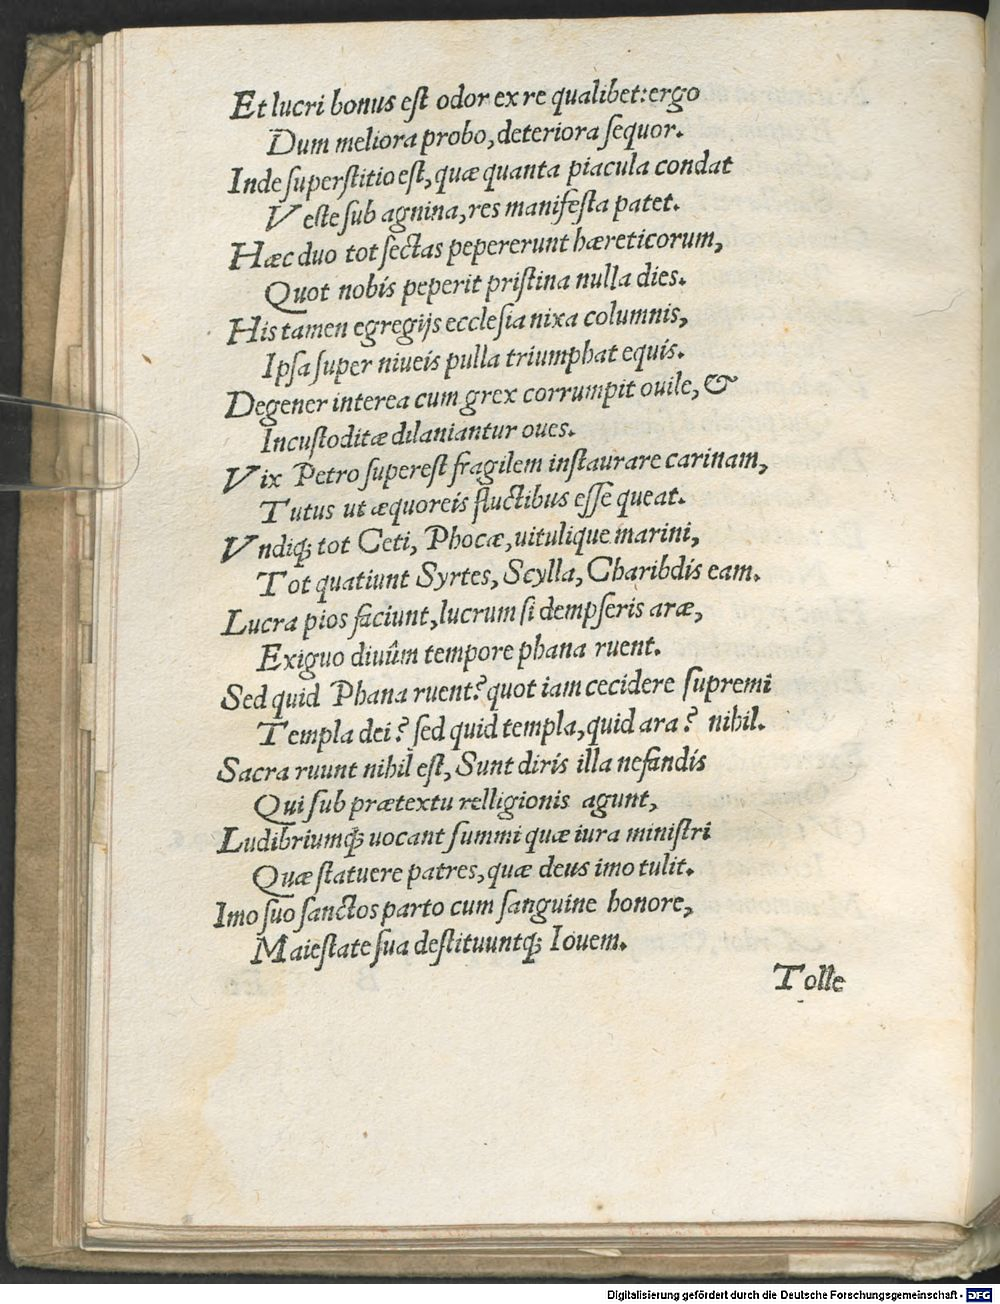 Et lucri bonus est odor ex re qualibet: ergo
Dum meliora probo, deteriora sequor.
Inde superstitio est, quæ quanta piacula condat
Veste sub agnina, res manifesta patet.
Hæc duo tot sectas pepererunt hæreticorum,
Quot nobis peperit pristina nulla dies.
His tamen egregijs ecclesia nixa columnis,
Ipsa super niueis pulla triumphat equis.
Degener interea cum grex corrumpit ouile, &
Incustoditæ dilaniantur oues.
Vix Petro superest fragilem instaurare carinam,
Tutus ut æquoreis fluctibus esse queat.
Vndiqꝫ tot Ceti, Phocæ, uitulique marini,
Tot quatiunt Syrtes, Scylla, Charibdis eam.
Lucra pios faciunt, lucrum si dempseris aræ,
Exiguo diuûm tempore phana ruent.
Sed quid Phana ruent? quot iam cecidere supremi
Templa dei? sed quid templa, quid ara? nihil.
Sacra ruunt nihil est, Sunt diris illa nefandis
Qui sub prætextu relligionis agunt,
Ludibriumqꝫ uocant summi quæ iura ministri
Quæ statuere patres, quæ deus imo tulit.
Imo suo sanctos parto cum sanguine honore,
Maiestate sua destituuntqꝫ Iouem.
Tolle
Digitalisierung gefördert durch die Deutsche Forschungsgemeinschaft - DFG